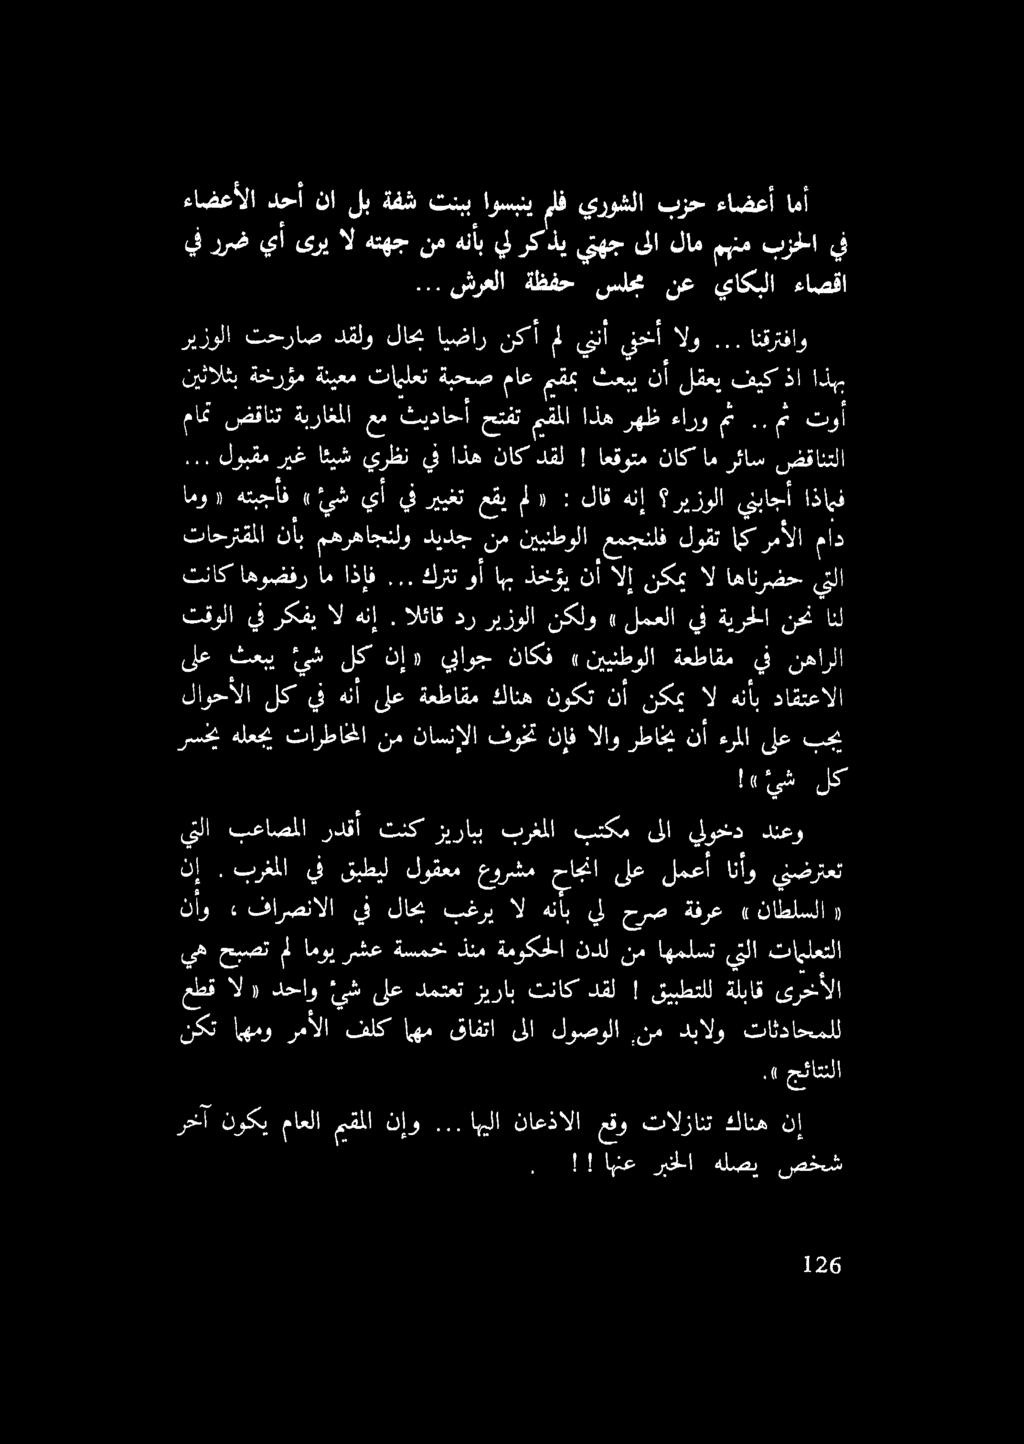 أما أعضاء حزب الشوري فلم ينبسوا ببنت شفة بل ان أحد الأعضاء
في الحزب منهم مال الى جهتي يذكر لي بأنه من جهته لا يرى أي ضرر في
اقصاء البكاي عن مجلس حفظة العرش ...
وافترقنا ... ولا أخفي أنني لم أكن راضيا بحال ولقد صارحت الوزير
بهذا اذ كيف يعقل أن يبعث بمقيم عام صحبة تعليمات معينة مؤرخة بثلاثين
أوت ثم .. ثم وراء ظهر هذا المقيم تفتح أحاديث مع المغاربة تناقض تمام
التناقض سائر ما كان متوقعا ! لقد كان هذا في نظري شيئا غير مقبول ...
فماذا أجابني الوزير ؟ إنه قال : « لم يقع تغيير في أي شيْ » فأجبته « وما
دام الأمر كما تقول فلنجمع الوطنيين من جديد ولنجاهرهم بأن المقترحات
التي حضرناها لا يمكن إلا أن يؤخذ بها أو تترك ... فإذا ما رفضوها كانت
لنا نحن الحرية في العمل » ولكن الوزير رد قائلا . إنه لا يفكر في الوقت
الراهن في مقاطعة الوطنيين » فكان جوابي « إن كل شيْ يبعث على
الاعتقاد بأنه لا يمكن أن تكون هناك مقاطعة على أنه في كل الأحوال
يجب على المرء أن يخاطر والا فإن تخوف الإنسان من المخاطرات يجعله يخسر
كل شيْ » !
وعند دخولي الى مكتب المغرب بباريز كنت أقدر المصاعب التي
تعترضني وأنا أعمل على انجاح مشروع معقول ليطبق في المغرب . إن
« السلطان » عرفة صرح لي بأنه لا يرغب بحال في الانصراف ، وأن
التعليمات التي تسلمها من لدن الحكومة منذ خمسة عشر يوما لم تصبح هي
الأخرى قابلة للتطبيق ! لقد كانت باريز تعتمد على شيْ واحد « لا قطع
للمحادثات ولابد من الوصول الى اتفاق مهما كلف الأمر ومهما تكن
النتائج ».
إن هناك تنازلات وقع الاذعان اليها ... وإن المقيم العام يكون آخر
شخص يصله الخبر عنها ! ! .
126